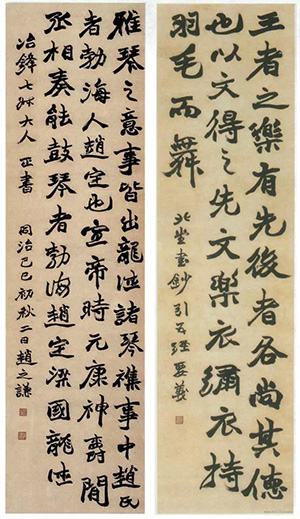 王者之樂有先後者各尚其德
也以文得之先文樂衣彌衣持
羽毛而舞
北堂書鈔引五經要義
雅琴之意事皆出龍德諸琴襍事中趙氏
者勃海人趙定也宣帝時元康神爵間
丞相奏能鼓琴者勃海趙定梁國龍德
冶鋒七兄大人 正書 同治己巳初秋二日趙之謙